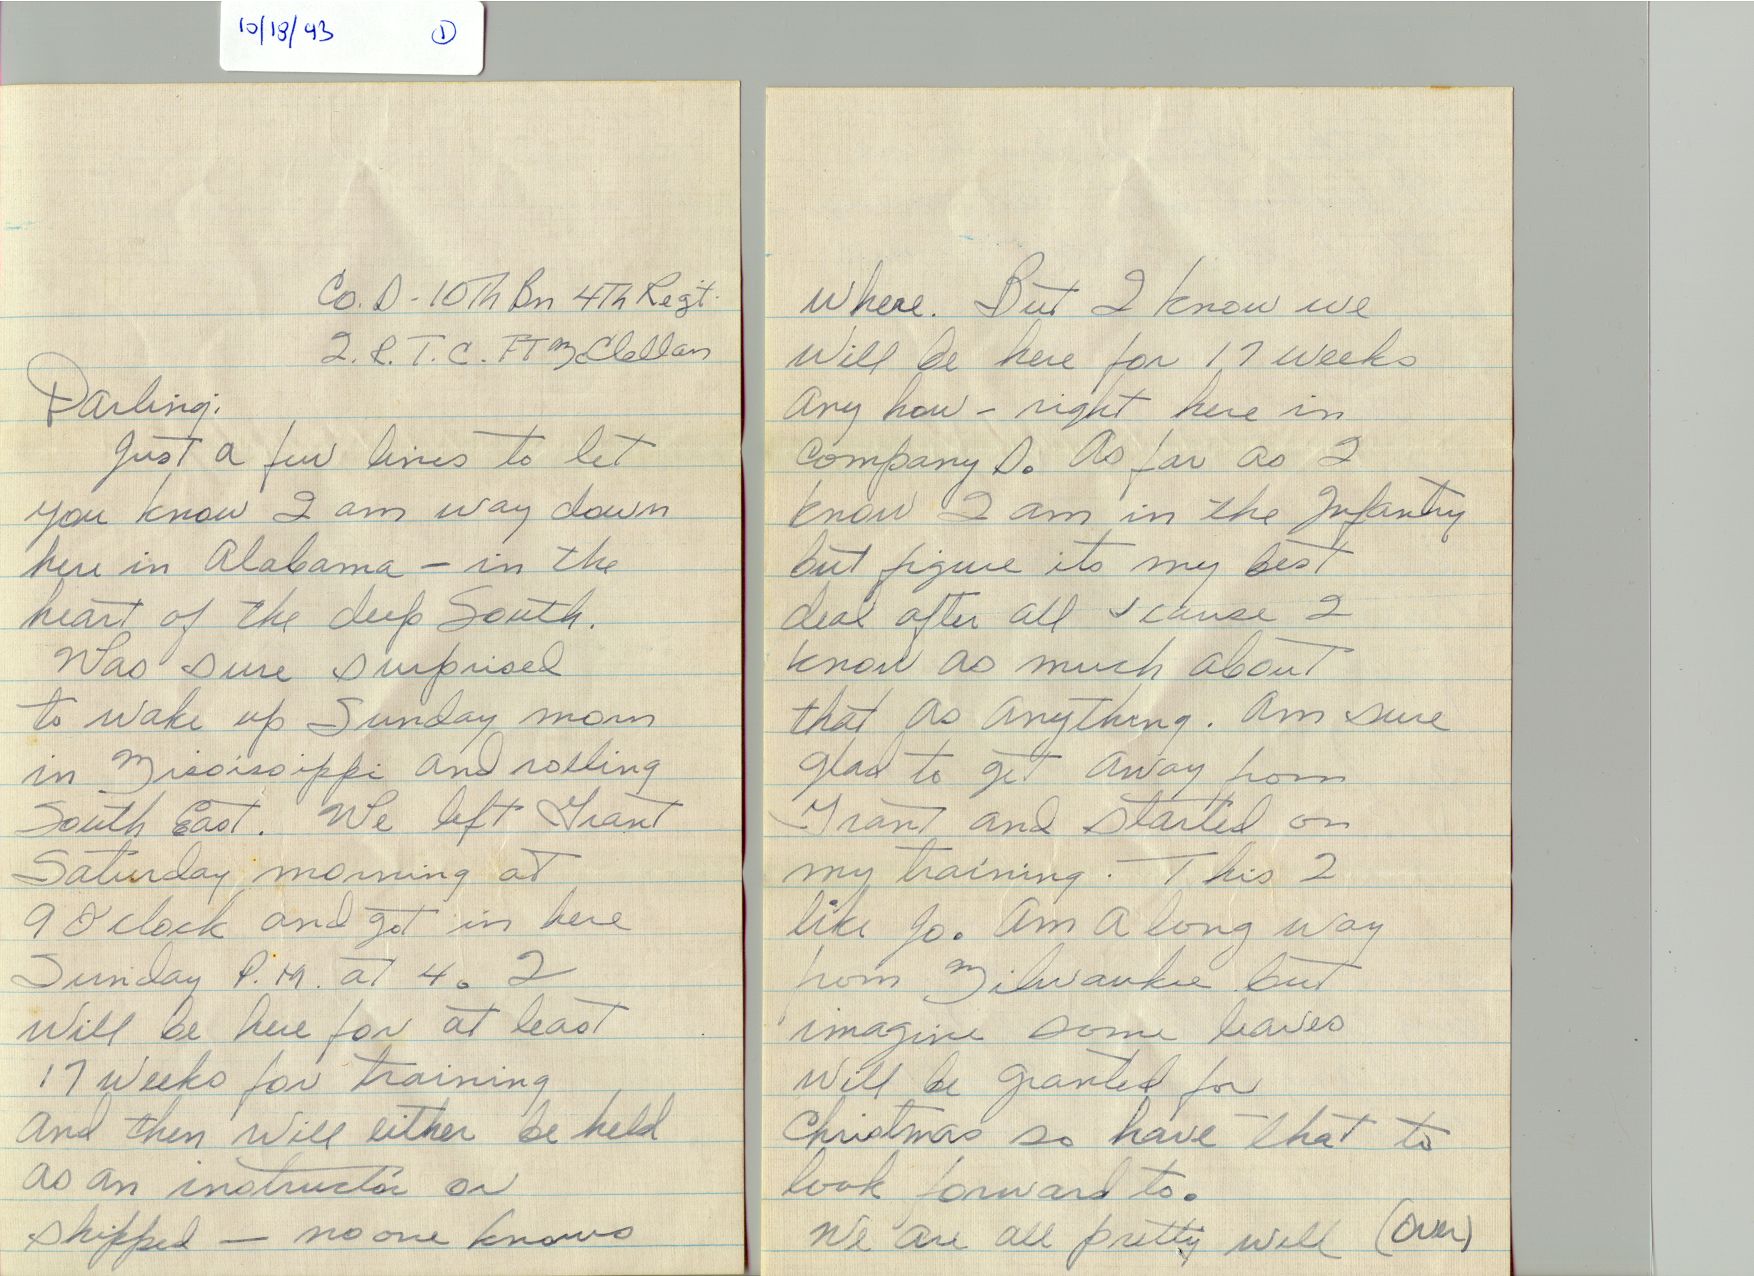 10/18/43 1
Co. D - 10Th Bn 4Th Regt.
I. R. T. C. FT McClellan
Darling;
Just a few lines to let
you know I am way down
here in Alabama - in the
heart of the deep South.
Was sure surprised
to wake up Sunday morn
in Missisoippi and rolling
South East. We left Grant
Saturday morning at
9 O'clock and got in here
Sunday P.M. at 4. I
will be here for at least
17 weeks for training
and then will either be held
as an instructor or
shipped - no one knows
where. But I know we
will be here for 17 weeks
any how - right here in
Company D. As far as I
know I am in the Infantry
but figure its my best
deal after all cause I
know as much about
that as anything. Am sure
glad to get away from
Grant and started on
my training. This I
like Jo. Am a long way
from Milwaukee but
imagine some leaves
will be granted for
Christmas so have that to
look forward to.
We are all pretty well (over)